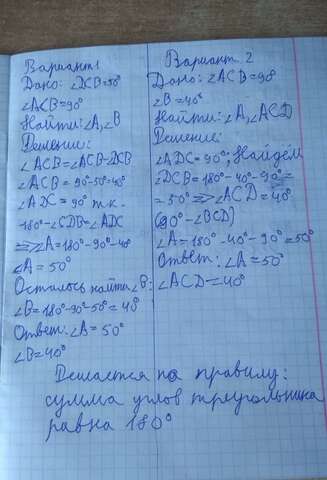 Вариант 1
Дано: ∠DCB=50°
∠ACB=90°
Найти: ∠A, ∠B
Решение:
∠ACB=∠ACB-DCB
∠ACB = 90°-50°=40°
∠ADC = 90° т.к.
180°-∠CDB=∠ADC
=> ∠A=180°-90°-40°
∠A=50°
Осталось найти ∠B:
∠B=180°-90°-50°=40°
Ответ: ∠A=50°
∠B=40°
Вариант 2
Дано: ∠ACB=90°
∠B=40°
Найти: ∠A, ∠ACD
Решение:
∠ADC=90°; Найдём
∠DCB=180°-40°-90°=
=50° => ∠ACD=40°
(90°-∠BCD)
∠A=180°-40°-90°=50°
Ответ: ∠A=50°
∠ACD=40°
Решается по правилу:
сумма углов треугольника
равна 180°